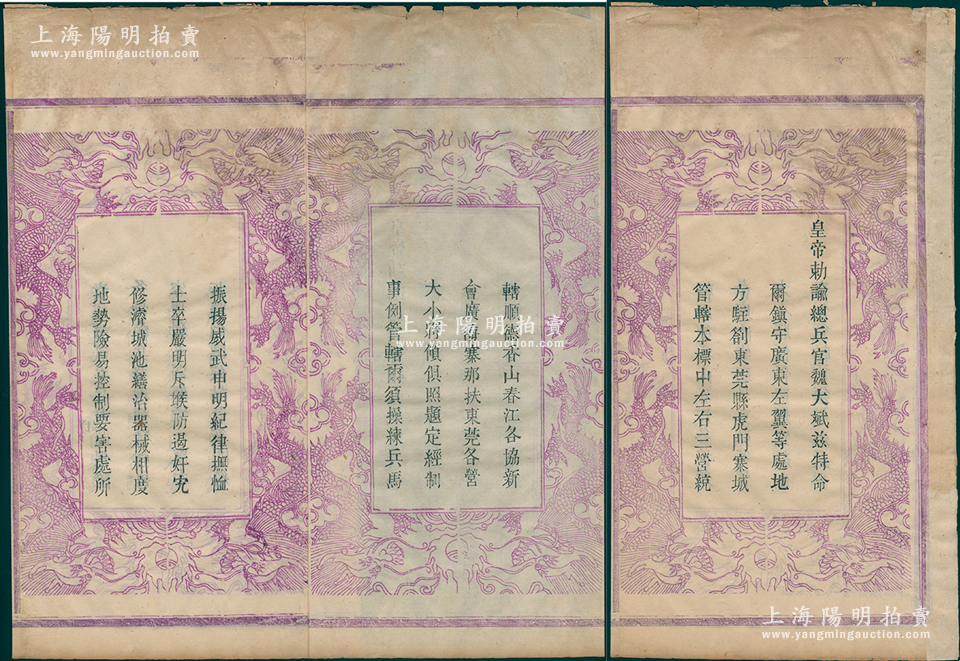 皇帝勅諭總兵官魏大斌兹特命
爾鎮守廣東左翼等處地
方駐劄東莞縣虎門寨城
管轄本標中左右三營統
轄順德香山春江各協新
會廣海寨那扶東莞各營
大小將領俱照題定經制
事例管轄爾須操練兵馬
振揚威武申明紀律撫恤
士卒嚴明斥堠防遏奸宄
修濬城池繕治器械相度
地勢險易控制要害處所
上海陽明拍賣
www.yangmingauction.com
上海陽明拍賣
www.yangmingauction.com
上海陽明拍賣
www.yangmingauction.com